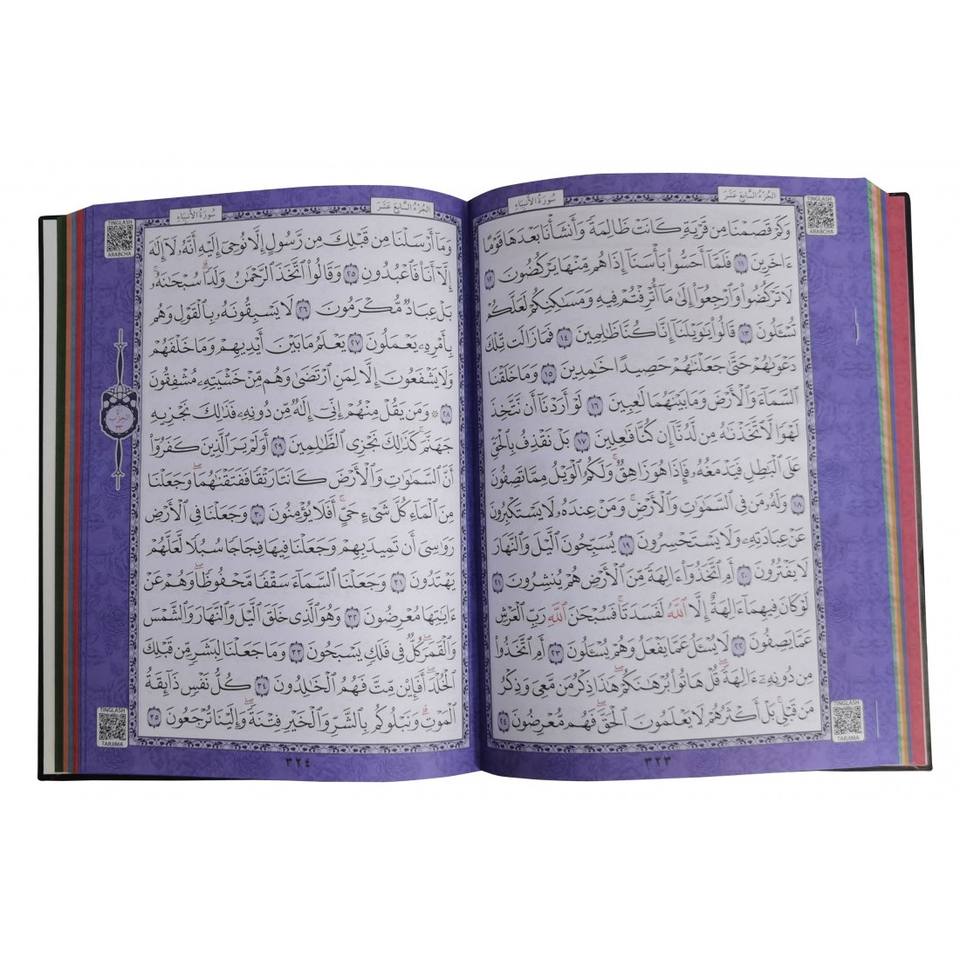 الجُزءُ السَّابِعَ عَشَرَ
سُورَةُ الأَنبِيَاءِ
TINGLASH
ARABCHA
وَكَمْ قَصَمْنَا مِن قَرْيَةٍ كَانَتْ ظَالِمَةً وَأَنشَأْنَا بَعْدَهَا قَوْمًا
ءَاخَرِينَ ١١ فَلَمَّآ أَحَسُّوا۟ بَأْسَنَآ إِذَا هُم مِّنْهَا يَرْكُضُونَ ١٢
لَا تَرْكُضُوا۟ وَٱرْجِعُوٓا۟ إِلَىٰ مَآ أُتْرِفْتُمْ فِيهِ وَمَسَٰكِنِكُمْ لَعَلَّكُمْ
تُسْـَٔلُونَ ١٣ قَالُوا۟ يَٰوَيْلَنَآ إِنَّا كُنَّا ظَٰلِمِينَ ١٤ فَمَا زَالَت تِّلْكَ
دَعْوَىٰهُمْ حَتَّىٰ جَعَلْنَٰهُمْ حَصِيدًا خَٰمِدِينَ ١٥ وَمَا خَلَقْنَا
ٱلسَّمَآءَ وَٱلْأَرْضَ وَمَا بَيْنَهُمَا لَٰعِبِينَ ١٦ لَوْ أَرَدْنَآ أَن نَّتَّخِذَ
لَهْوًا لَّٱتَّخَذْنَٰهُ مِن لَّدُنَّآ إِن كُنَّا فَٰعِلِينَ ١٧ بَلْ نَقْذِفُ بِٱلْحَقِّ
عَلَى ٱلْبَٰطِلِ فَيَدْمَغُهُۥ فَإِذَا هُوَ زَاهِقٌ ۚ وَلَكُمُ ٱلْوَيْلُ مِمَّا تَصِفُونَ
١٨ وَلَهُۥ مَن فِى ٱلسَّمَٰوَٰتِ وَٱلْأَرْضِ ۚ وَمَنْ عِندَهُۥ لَا يَسْتَكْبِرُونَ
عَنْ عِبَادَتِهِۦ وَلَا يَسْتَحْسِرُونَ ١٩ يُسَبِّحُونَ ٱلَّيْلَ وَٱلنَّهَارَ
لَا يَفْتُرُونَ ٢٠ أَمِ ٱتَّخَذُوٓا۟ ءَالِهَةً مِّنَ ٱلْأَرْضِ هُمْ يُنشِرُونَ ٢١
لَوْ كَانَ فِيهِمَآ ءَالِهَةٌ إِلَّا ٱللَّهُ لَفَسَدَتَا ۚ فَسُبْحَٰنَ ٱللَّهِ رَبِّ ٱلْعَرْشِ
عَمَّا يَصِفُونَ ٢٢ لَا يُسْـَٔلُ عَمَّا يَفْعَلُ وَهُمْ يُسْـَٔلُونَ ٢٣ أَمِ ٱتَّخَذُوا۟
مِن دُونِهِۦٓ ءَالِهَةً ۖ قُلْ هَاتُوا۟ بُرْهَٰنَكُمْ ۖ هَٰذَا ذِكْرُ مَن مَّعِىَ وَذِكْرُ
مَن قَبْلِى ۗ بَلْ أَكْثَرُهُمْ لَا يَعْلَمُونَ ٱلْحَقَّ ۖ فَهُم مُّعْرِضُونَ ٢٤
TINGLASH
TARJIMA
٣٢٣
الجُزءُ السَّابِعَ عَشَرَ
سُورَةُ الأَنبِيَاءِ
TINGLASH
ARABCHA
وَمَآ أَرْسَلْنَا مِن قَبْلِكَ مِن رَّسُولٍ إِلَّا نُوحِىٓ إِلَيْهِ أَنَّهُۥ لَآ إِلَٰهَ
إِلَّآ أَنَا۠ فَٱعْبُدُونِ ٢٥ وَقَالُوا۟ ٱتَّخَذَ ٱلرَّحْمَٰنُ وَلَدًا ۗ سُبْحَٰنَهُۥ ۚ
بَلْ عِبَادٌ مُّكْرَمُونَ ٢٦ لَا يَسْبِقُونَهُۥ بِٱلْقَوْلِ وَهُم
بِأَمْرِهِۦ يَعْمَلُونَ ٢٧ يَعْلَمُ مَا بَيْنَ أَيْدِيهِمْ وَمَا خَلْفَهُمْ
وَلَا يَشْفَعُونَ إِلَّا لِمَنِ ٱرْتَضَىٰ وَهُم مِّنْ خَشْيَتِهِۦ مُشْفِقُونَ
٢٨ ۞ وَمَن يَقُلْ مِنْهُمْ إِنِّىٓ إِلَٰهٌ مِّن دُونِهِۦ فَذَٰلِكَ نَجْزِيهِ
جَهَنَّمَ ۚ كَذَٰلِكَ نَجْزِى ٱلظَّٰلِمِينَ ٢٩ أَوَلَمْ يَرَ ٱلَّذِينَ كَفَرُوٓا۟
أَنَّ ٱلسَّمَٰوَٰتِ وَٱلْأَرْضَ كَانَتَا رَتْقًا فَفَتَقْنَٰهُمَا ۖ وَجَعَلْنَا
مِنَ ٱلْمَآءِ كُلَّ شَىْءٍ حَىٍّ ۖ أَفَلَا يُؤْمِنُونَ ٣٠ وَجَعَلْنَا فِى ٱلْأَرْضِ
رَوَٰسِىَ أَن تَمِيدَ بِهِمْ وَجَعَلْنَا فِيهَا فِجَاجًا سُبُلًا لَّعَلَّهُمْ
يَهْتَدُونَ ٣١ وَجَعَلْنَا ٱلسَّمَآءَ سَقْفًا مَّحْفُوظًا ۖ وَهُمْ عَنْ
ءَايَٰتِهَا مُعْرِضُونَ ٣٢ وَهُوَ ٱلَّذِى خَلَقَ ٱلَّيْلَ وَٱلنَّهَارَ وَٱلشَّمْسَ
وَٱلْقَمَرَ ۖ كُلٌّ فِى فَلَكٍ يَسْبَحُونَ ٣٣ وَمَا جَعَلْنَا لِبَشَرٍ مِّن قَبْلِكَ
ٱلْخُلْدَ ۖ أَفَإِي۟ن مِّتَّ فَهُمُ ٱلْخَٰلِدُونَ ٣٤ كُلُّ نَفْسٍ ذَآئِقَةُ
ٱلْمَوْتِ ۗ وَنَبْلُوكُم بِٱلشَّرِّ وَٱلْخَيْرِ فِتْنَةً ۖ وَإِلَيْنَا تُرْجَعُونَ ٣٥
TINGLASH
TARJIMA
٣٢٤